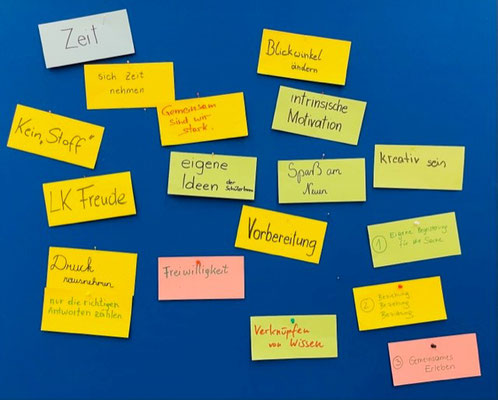 Zeit
sich Zeit
nehmen
Blickwinkel
ändern
Gemeinsam
sind wir
stark.
intrinsische
Motivation
Kein "Stoff"
eigene
Ideen der SchülerInnen
Spaß am
Neuen
kreativ sein
LK Freude
Vorbereitung
① Eigene Begeisterung
für die Sache
Druck
rausnehmen
nur die richtigen
Antworten zählen
Freiwilligkeit
② Beziehung
Beziehung
Beziehung
Verknüpfen
von Wissen
③ Gemeinsames
Erleben